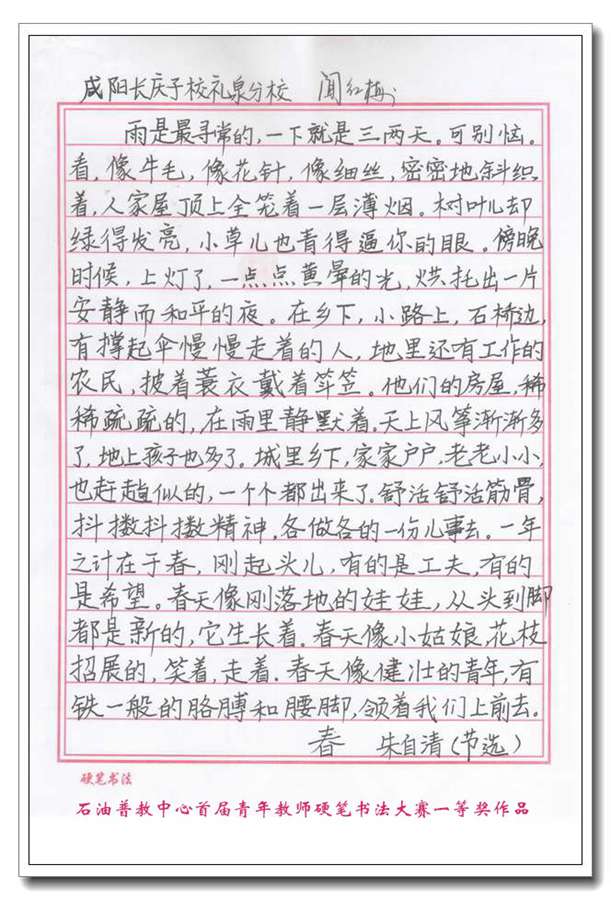 咸阳长庆子校礼泉分校 闻红梅
雨是最寻常的,一下就是三两天。可别恼。
看,像牛毛,像花针,像细丝,密密地斜织
着,人家屋顶上全笼着一层薄烟。树叶儿却
绿得发亮,小草儿也青得逼你的眼。傍晚
时候,上灯了,一点点黄晕的光,烘托出一片
安静而和平的夜。在乡下,小路上,石桥边,
有撑起伞慢慢走着的人,地里还有工作的
农民,披着蓑衣戴着笠。他们的房屋,稀
稀疏疏的,在雨里静默着。天上风筝渐渐多
了,地上孩子也多了。城里乡下,家家户户,老老小小,
也赶趟似的,一个个都出来了。舒活舒活筋骨,
抖擞抖擞精神,各做各的一份儿事去。一年
之计在于春,刚起头儿,有的是工夫,有的
是希望。春天像刚落地的娃娃,从头到脚
都是新的,它生长着。春天像小姑娘,花枝
招展的,笑着,走着。春天像健壮的青年,有
铁一般的胳膊和腰脚,领着我们上前去。
春 朱自清(节选)
硬笔书法
石油普教中心首届青年教师硬笔书法大赛一等奖作品